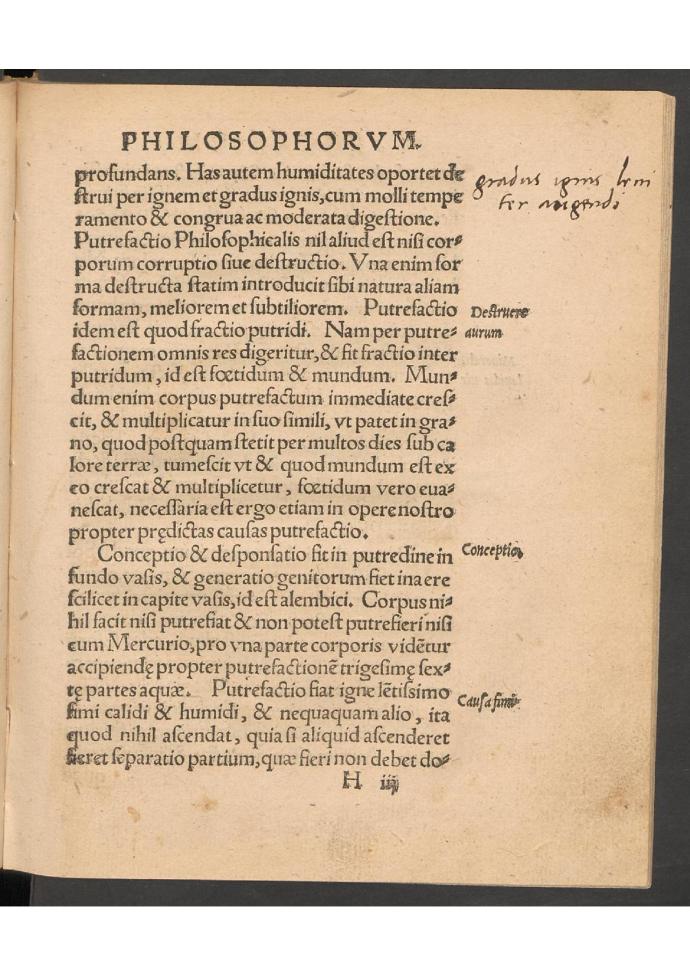 PHILOSOPHORVM.
profundans. Has autem humiditates oportet de
ſtrui per ignem et gradus ignis, cum molli tempe
ramento & congrua ac moderata digeſtione.
gradus ignis leni
ter augendi
Putrefactio Philoſophicalis nil aliud eſt niſi cor⸗
porum corruptio ſiue deſtructio. Vna enim for
ma deſtructa ſtatim introducit ſibi natura aliam
formam, meliorem et ſubtiliorem. Putrefactio
idem eſt quod fractio putridi. Nam per putre⸗
Deſtruere
aurum
factionem omnis res digeritur, & fit fractio inter
putridum, id eſt fœtidum & mundum. Mun⸗
dum enim corpus putrefactum immediate creſ⸗
cit, & multiplicatur in ſuo ſimili, vt patet in gra⸗
no, quod poſtquam ſtetit per multos dies ſub ca
lore terræ, tumeſcit vt & quod mundum eſt ex
eo creſcat & multiplicetur, fœtidum vero eua⸗
neſcat, neceſſaria eſt ergo etiam in opere noſtro
propter prędictas cauſas putrefactio.
Conceptio & deſponſatio fit in putredine in
Conceptio
fundo vaſis, & generatio genitorum fiet in aere
ſcilicet in capite vaſis, id eſt alembici. Corpus ni⸗
hil facit niſi putrefiat & non poteſt putrefieri niſi
cum Mercurio, pro vna parte corporis vidētur
accipiendę propter putrefactionē trigeſimę ſex⸗
tę partes aquæ. Putrefactio fiat igne lētiſſimo
fimi calidi & humidi, & nequaquam alio, ita
Cauſa
quod nihil aſcendat, quia ſi aliquid aſcenderet
fieret ſeparatio partium, quæ fieri non debet do⸗
H iij